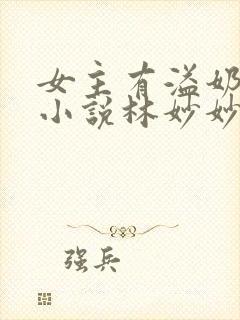 女主有溢奶
小说林妙妙
强兵